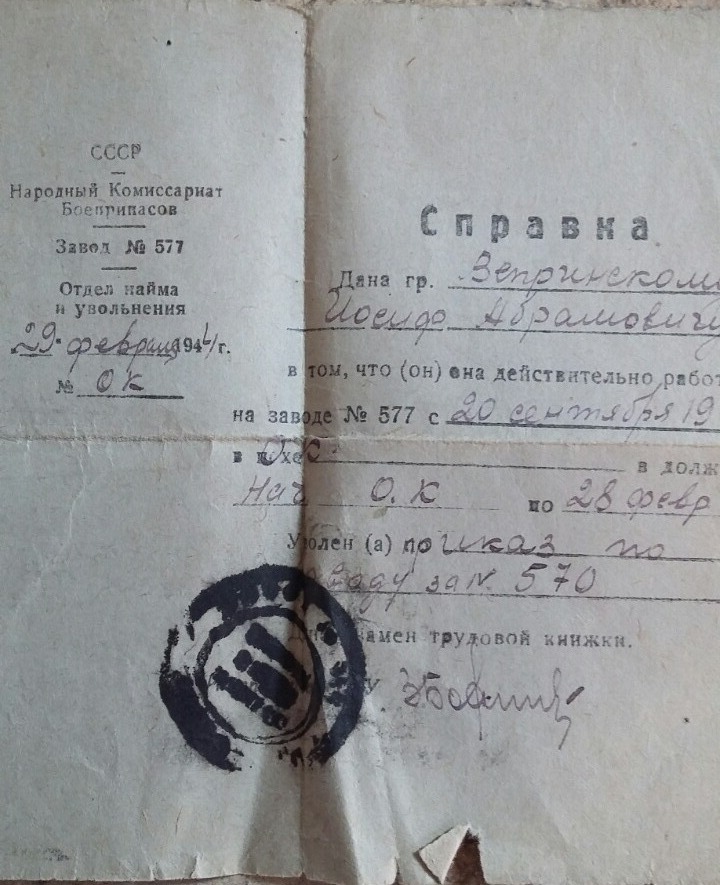 СССР
Народный Комиссариат
Боеприпасов
Завод № 577
Отдел найма
и увольнения
29 февраля 1944 г.
№ ОК
Справка
Дана гр. Вепринскому
Иосифу Абрамовичу
в том, что (он) она действительно работ
на заводе № 577 с 20 сентября 19
в цехе ОК в долж
Нач О.К по 28 февр
Уволен (а) приказ по
заводу за N. 570
замен трудовой книжки.